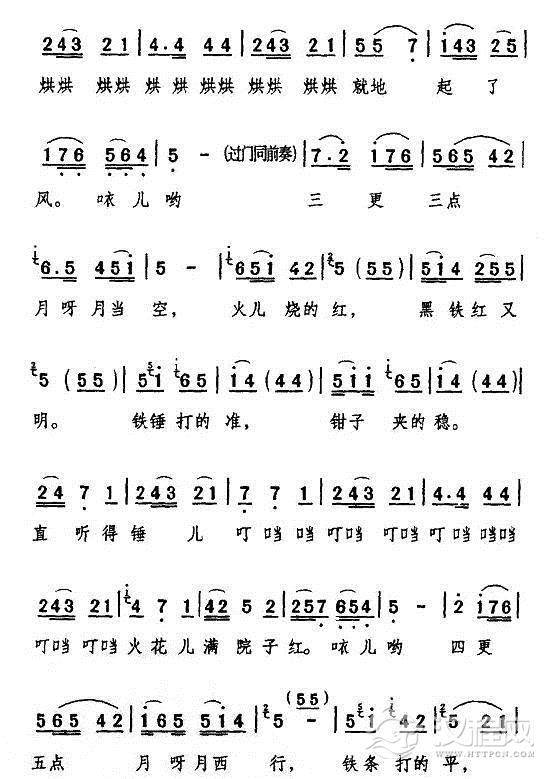 243 21 | 4.4 44 | 243 21 | 55 7 | 143 25 |
烘烘 烘烘 烘 烘 烘烘 烘烘 烘烘 就地 起 了
176 564 | 5 - (过门同前奏) | 7.2 176 | 565 42 |
风。 咴 儿 哟 三 更 三点
6.5 451 | 5 - | 651 42 | 5 (55) | 514 255 |
月 呀 月当 空, 火儿 烧的 红, 黑 铁红 又
5 (55) | 51 65 | 14 (44) | 511 65 | 14 (44) |
明。 铁锤 打的 准, 钳子 夹的 稳。
24 7 1 | 243 21 | 7 7 1 | 243 21 | 4.4 44 |
直 听 得 锤 儿 叮 当 当 叮当 叮当 叮当 当当
243 21 | 4 7 1 | 42 5 2 | 257 654 | 5 - | 2 176 |
叮当 叮当 火 花 儿 满 院 子 红。 咴 儿 哟 四 更
565 42 | 165 514 | 5 - (55) | 51 65 | 5 21 |
五点 月 呀 月西 行, 铁条 打的 平,
汉程网
HTTPCN.COM